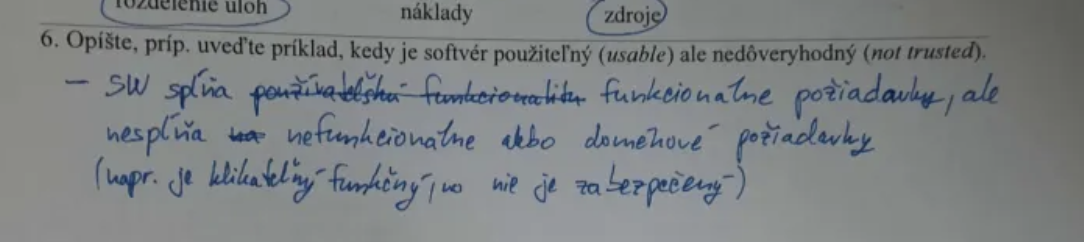 rozdelenie úloh náklady zdroje
6. Opíšte, príp. uveďte príklad, kedy je softvér použiteľný (usable) ale nedôveryhodný (not trusted).
– SW spĺňa používateľskú funkcionalitu funkcionalne požiadavky, ale
nespĺňa na nefunkcionalne alebo doménové požiadavky
(napr. je klikateľný funkčný, no nie je zabezpečený)